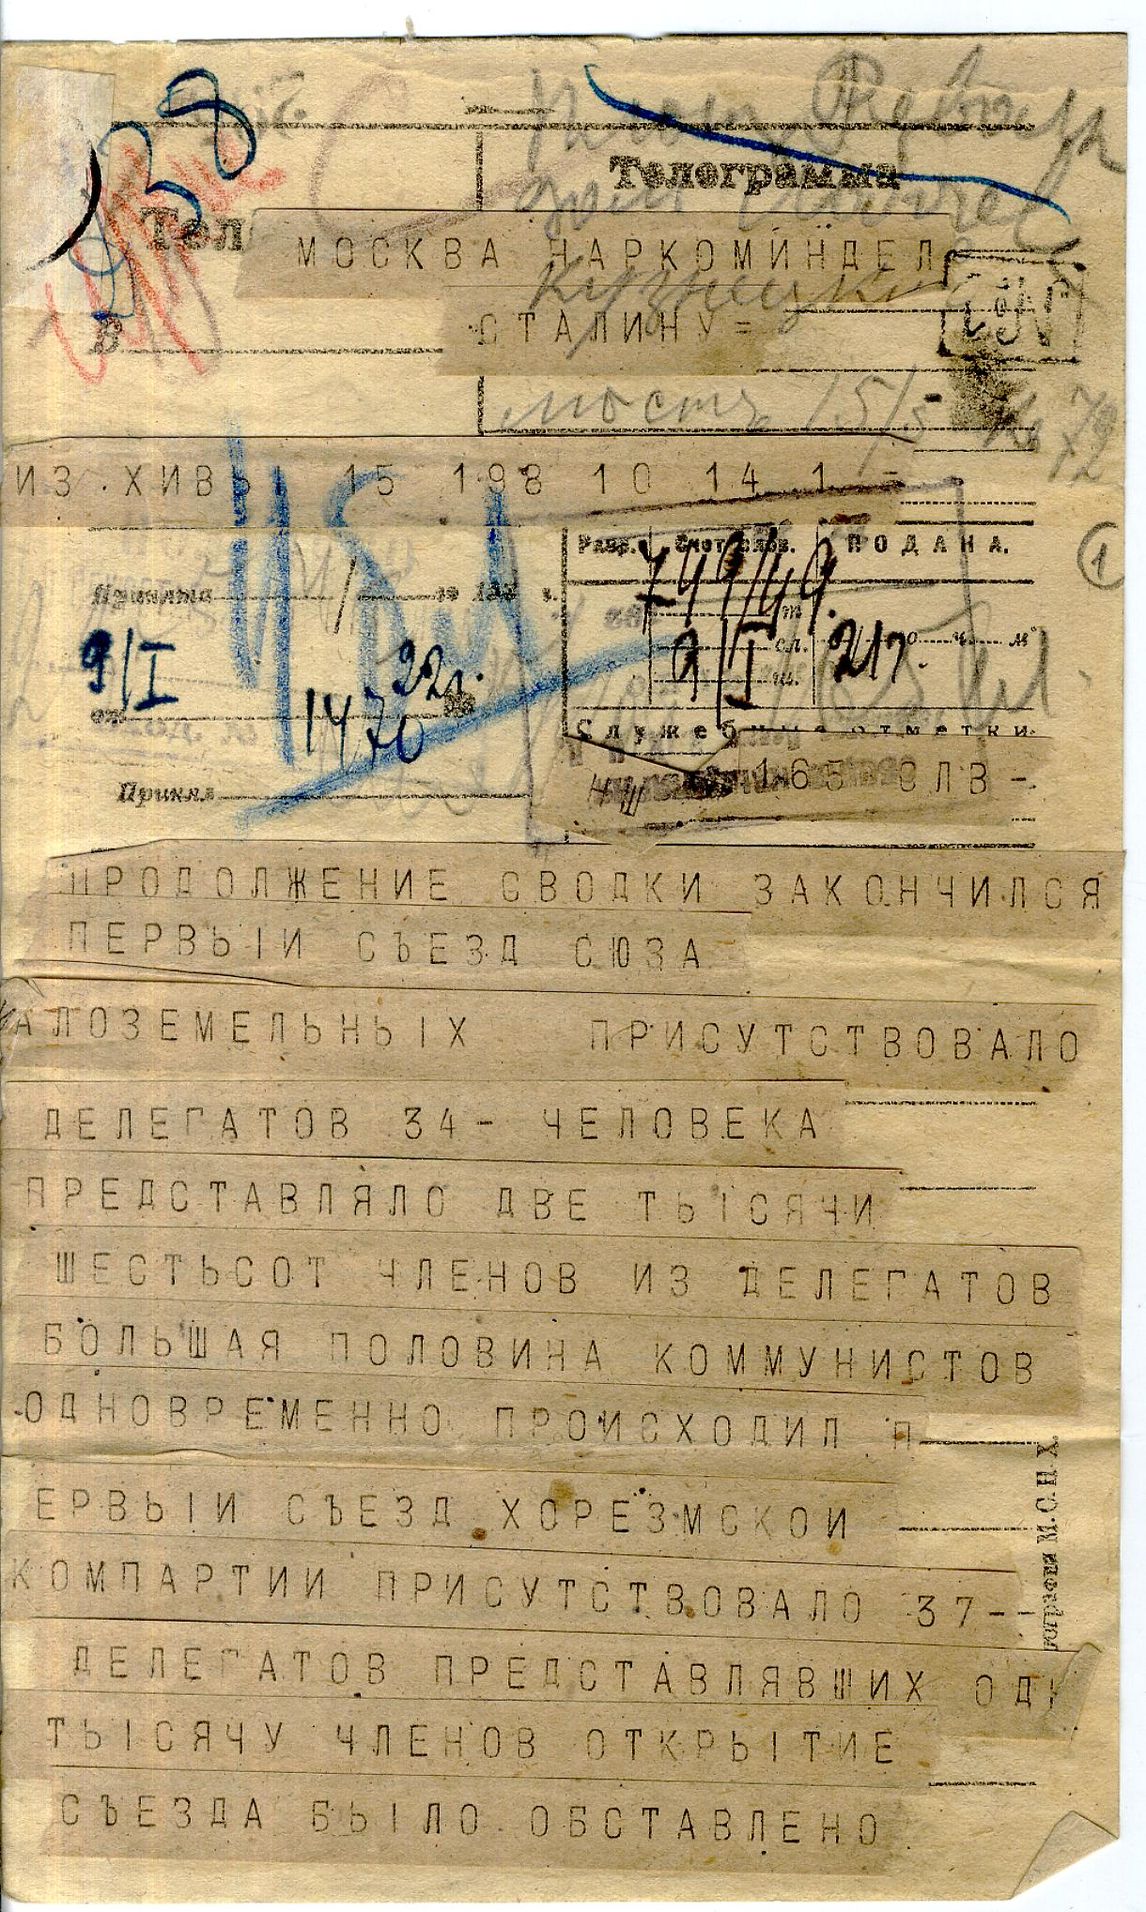 238
Телеграмма
Тел
МОСКВА НАРКОМИНДЕЛ
В
СТАЛИНУ =
Кузнецкий
мост 15/5 к 72
ИЗ ХИВЫ 15 198 10 14 1 =
Разр. Счет слов. ПРОДАНА.
1
Принята
749/49.
9/I 22г.
9/I 217
1470
Служебные отметки
Принял
165 СЛВ -
ПРОДОЛЖЕНИЕ СВОДКИ ЗАКОНЧИЛСЯ
ПЕРВЫИ СЪЕЗД СЮЗА
МАЛОЗЕМЕЛЬНЫХ ПРИСУТСТВОВАЛО
ДЕЛЕГАТОВ 34- ЧЕЛОВЕКА
ПРЕДСТАВЛЯЛО ДВЕ ТЫСЯЧИ
ШЕСТЬСОТ ЧЛЕНОВ ИЗ ДЕЛЕГАТОВ
БОЛЬШАЯ ПОЛОВИНА КОММУНИСТОВ
ОДНОВРЕМЕННО ПРОИСХОДИЛ П
ЕРВЫИ СЪЕЗД ХОРЕЗМСКОИ
КОМПАРТИИ ПРИСУТСТВОВАЛО 37--
ДЕЛЕГАТОВ ПРЕДСТАВЛЯВШИХ ОД
ТЫСЯЧУ ЧЛЕНОВ ОТКРЫТИЕ
СЪЕЗДА БЫЛО ОБСТАВЛЕНО
ография М.С.Н.Х.